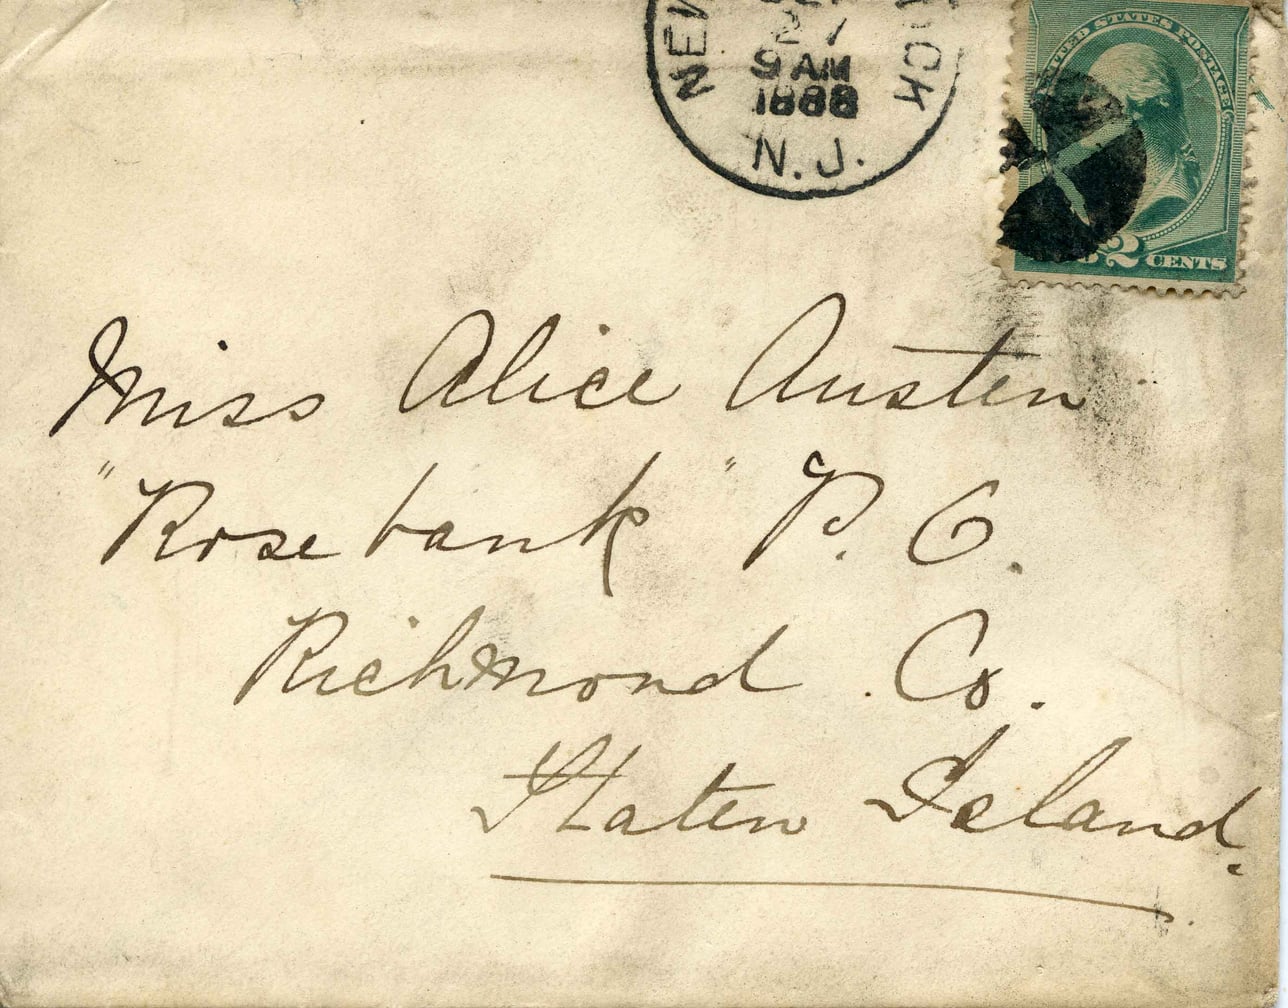 27
9 AM
1888
N.J.
UNITED STATES POSTAGE
2 CENTS
Miss Alice Austen
"Rosebank" P. O.
Richmond Co.
Staten Island.